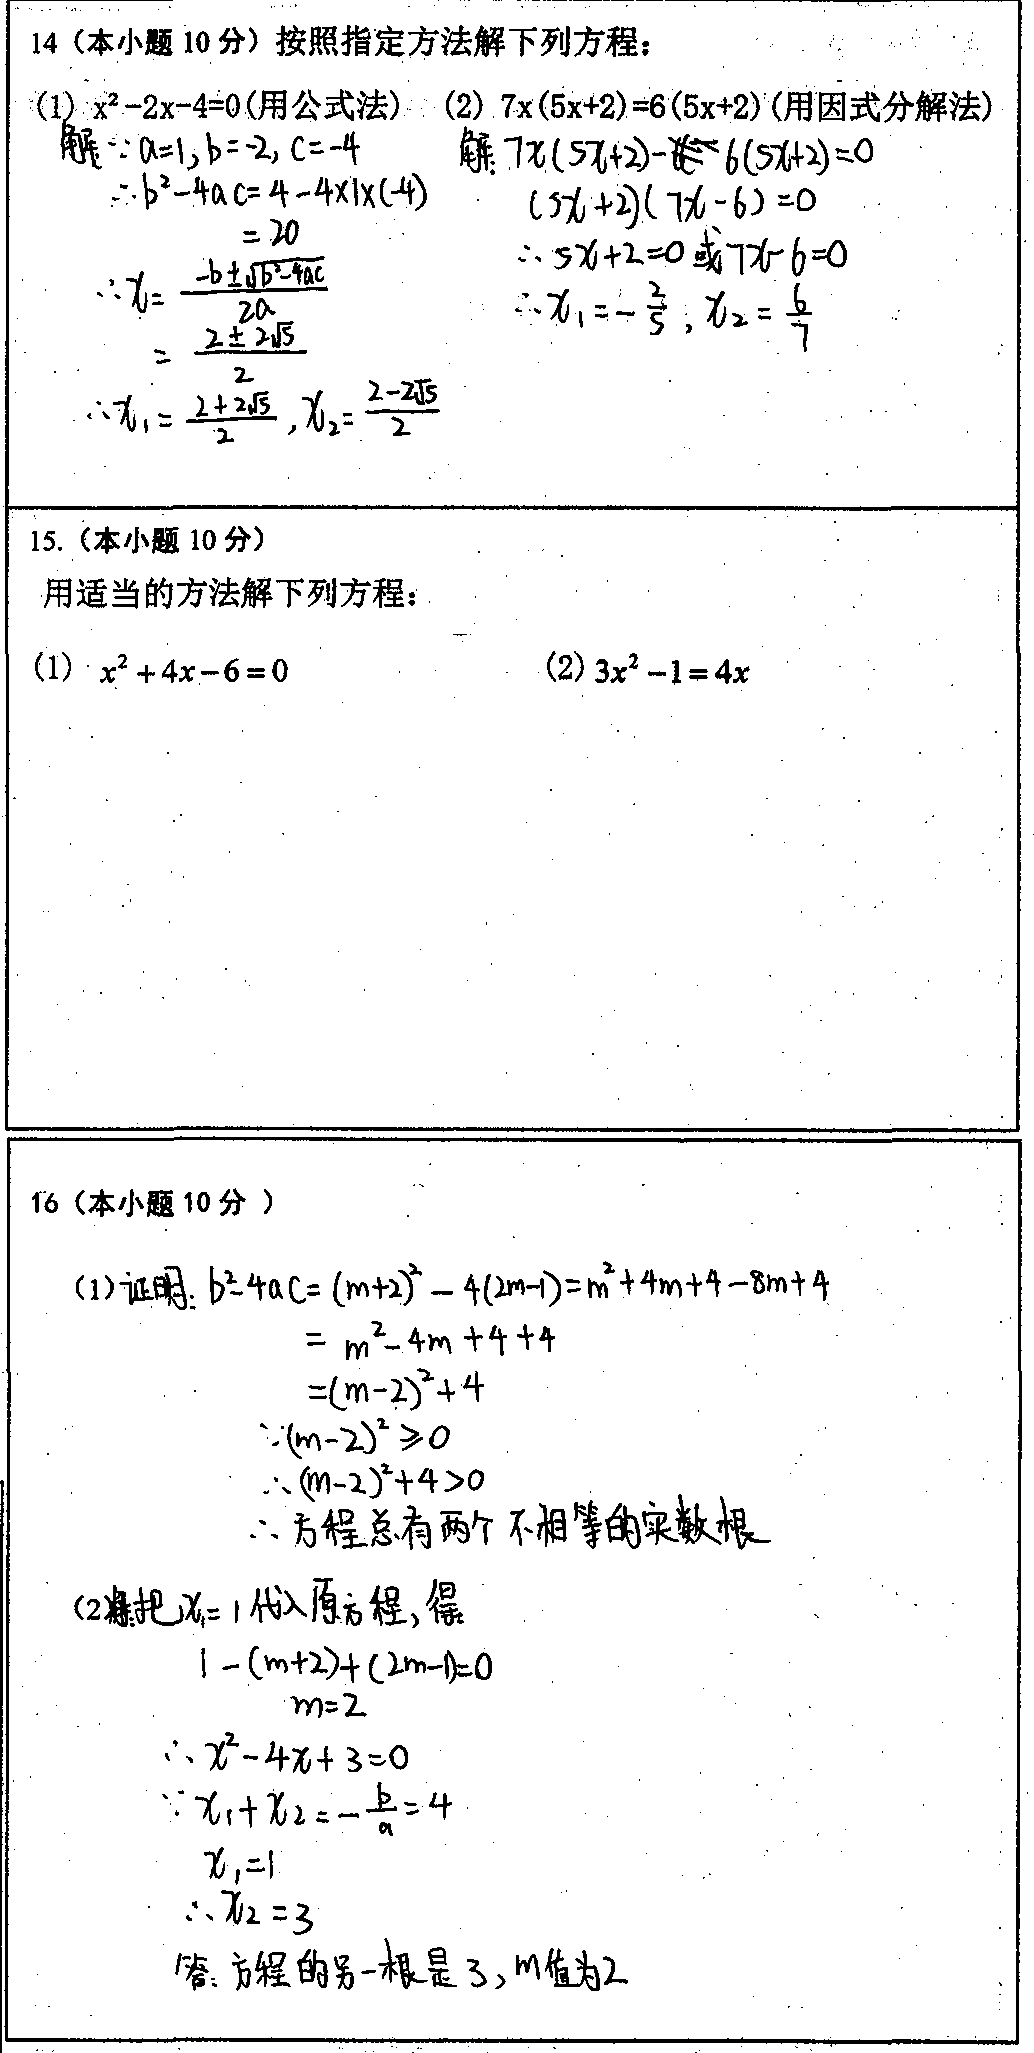 14（本小题 10 分）按照指定方法解下列方程：
(1) x²-2x-4=0(用公式法) (2) 7x(5x+2)=6(5x+2)(用因式分解法)
解∵a=1, b=-2, c=-4
∴b²-4ac=4-4×1×(-4)
=20
∴x=(-b±√(b²-4ac))/2a
=(2±2√5)/2
∴x₁=(2+2√5)/2, x₂=(2-2√5)/2
解: 7x(5x+2)-6(5x+2)=0
(5x+2)(7x-6)=0
∴5x+2=0或7x-6=0
∴x₁=-2/5, x₂=6/7
15.（本小题 10 分）
用适当的方法解下列方程：
(1) x²+4x-6=0 (2) 3x²-1=4x
16（本小题 10 分 ）
(1)证明: b²-4ac=(m+2)²-4(2m-1)=m²+4m+4-8m+4
=m²-4m+4+4
=(m-2)²+4
∵(m-2)²≥0
∴(m-2)²+4>0
∴方程总有两个不相等的实数根
(2)解把x₁=1代入原方程,得
1-(m+2)+(2m-1)=0
m=2
∴x²-4x+3=0
∵x₁+x₂=-b/a=4
x₁=1
∴x₂=3
答:方程的另一根是3,m值为2